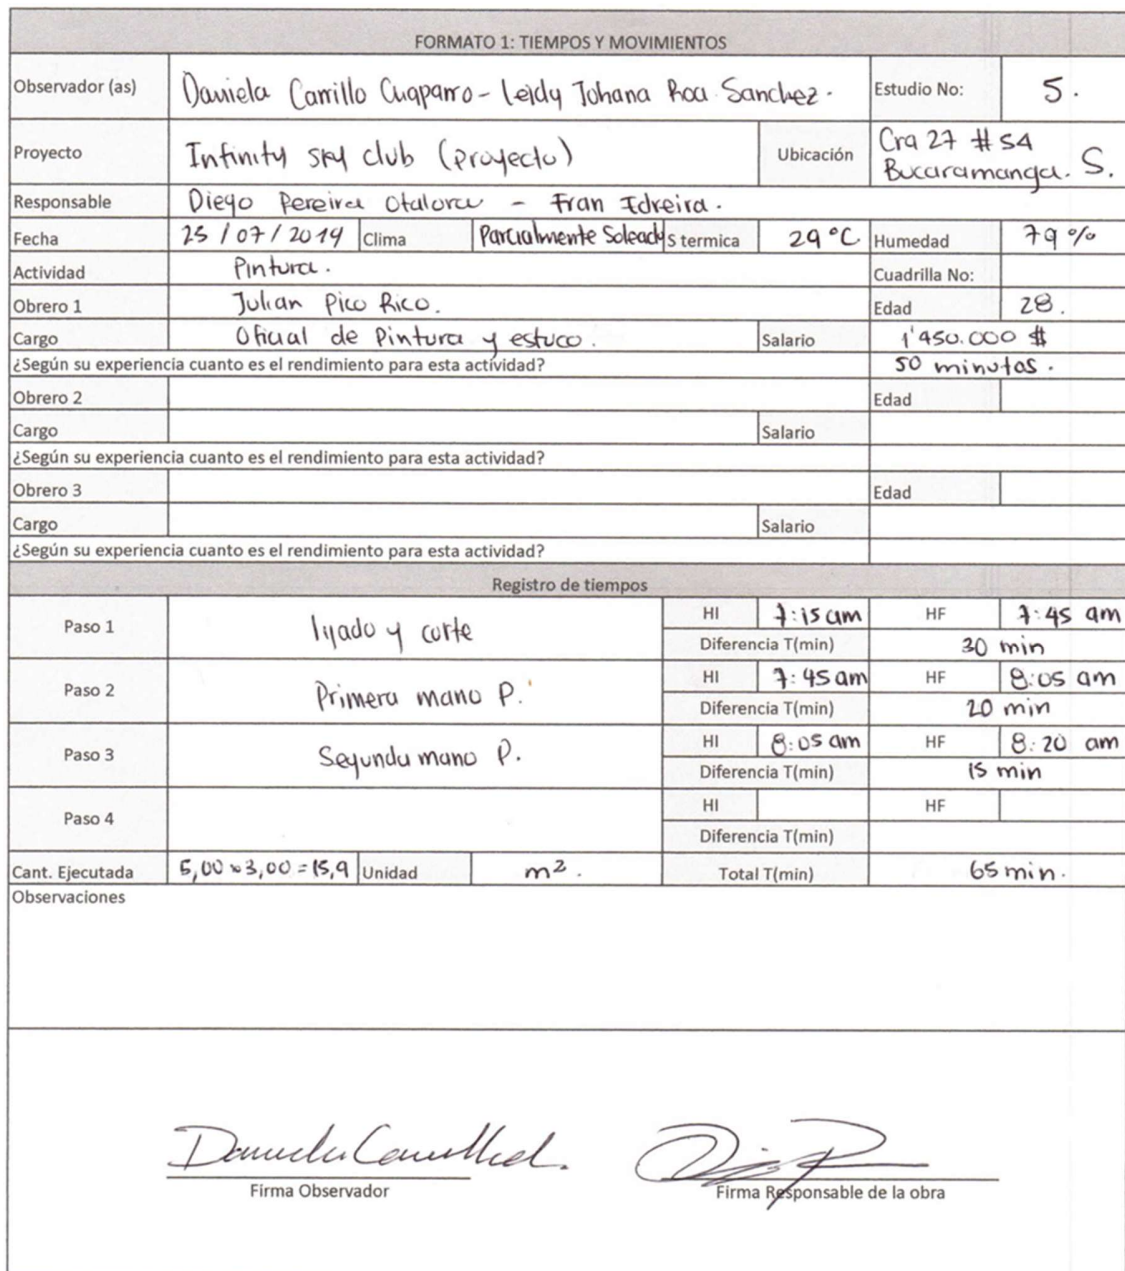 FORMATO 1: TIEMPOS Y MOVIMIENTOS
Observador (as) Daniela Carrillo Chaparro - Leidy Johana Roa Sanchez. Estudio No: 5.
Proyecto Infinity sky club (proyecto) Ubicación Cra 27 # 54
Bucaramanga. S.
Responsable Diego Pereira Otalora - Fran Idreira.
Fecha 25 / 07 / 2019 Clima Parcialmente Soleado S termica 29 °C Humedad 79 %
Actividad Pintura. Cuadrilla No:
Obrero 1 Julian Pico Rico. Edad 28.
Cargo Oficial de Pintura y estuco. Salario 1'450.000 $
¿Según su experiencia cuanto es el rendimiento para esta actividad? 50 minutos.
Obrero 2 Edad
Cargo Salario
¿Según su experiencia cuanto es el rendimiento para esta actividad?
Obrero 3 Edad
Cargo Salario
¿Según su experiencia cuanto es el rendimiento para esta actividad?
Registro de tiempos
Paso 1 lijado y corte HI 7:15 am HF 7:45 am
Diferencia T(min) 30 min
Paso 2 Primera mano P. HI 7:45 am HF 8:05 am
Diferencia T(min) 20 min
Paso 3 Segunda mano P. HI 8:05 am HF 8:20 am
Diferencia T(min) 15 min
Paso 4 HI HF
Diferencia T(min)
Cant. Ejecutada 5,00 x 3,00 = 15,9 Unidad m². Total T(min) 65 min.
Observaciones
Firma Observador Firma Responsable de la obra